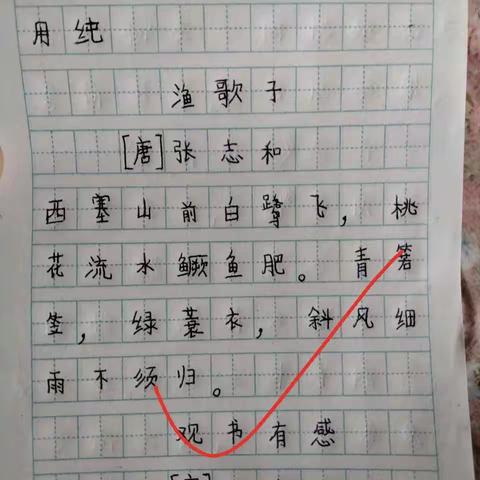 用纯
渔歌子
[唐]张志和
西塞山前白鹭飞，桃
花流水鳜鱼肥。青箬
笠，绿蓑衣，斜风细
雨不须归。
观书有感